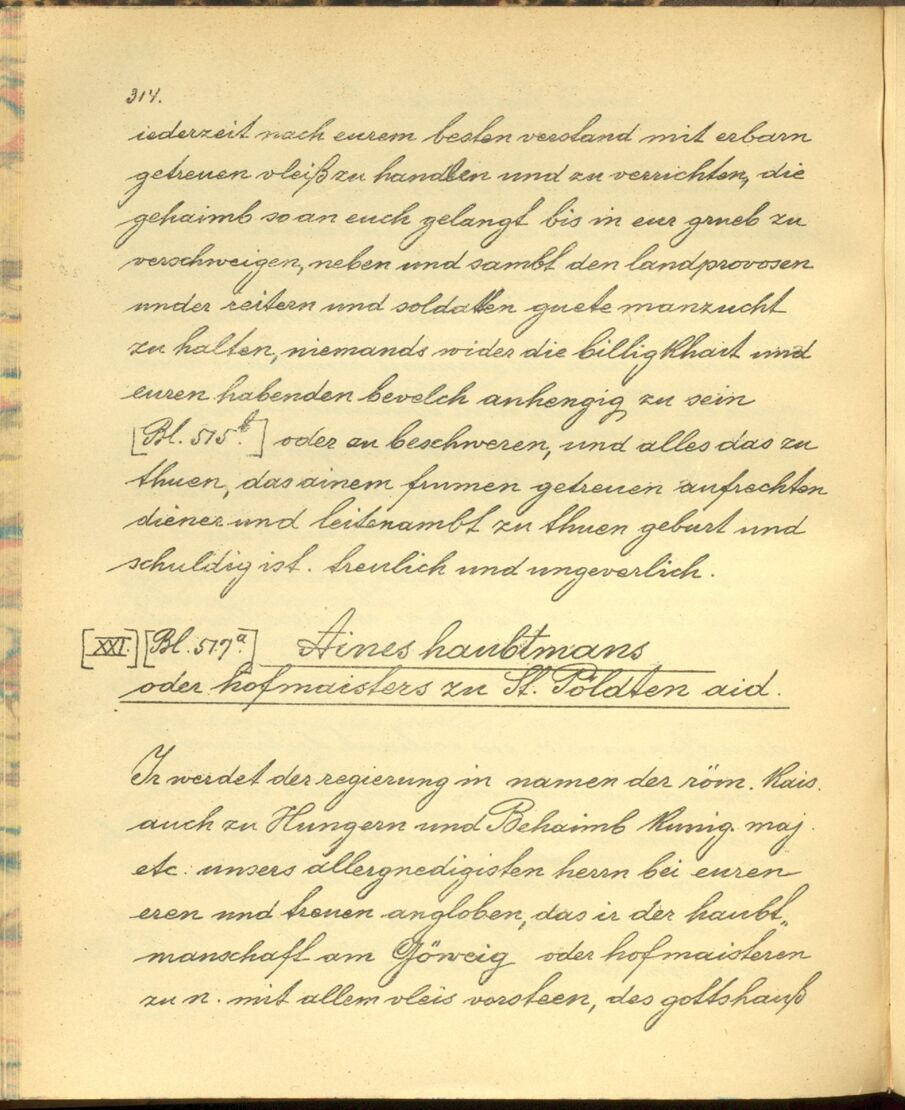 314.
iederzeit nach eurem besten verstand mit erbarn
getreuen vleiß zu handlen und zu verrichten, die
gehaimb so an euch gelangt bis in eur grueb zu
verschweigen, neben und sambt den landprovosen
under reitern und soldatten guete manzucht
zu halten, niemands wider die billigkhait und
euren habenden bevelch anhengig zu sein
[Bl. 515b.] oder zu beschweren, und alles das zu
thuen, das ainem frumen getreuen aufrechten
diener und leitenambt zu thuen geburt und
schuldig ist. treulich und ungeverlich.
[XXI.] [Bl. 517a.] Aines haubtmans
oder hofmaisters zu St. Pöldten aid.
Ir werdet der regierung in namen der röm. Kais.
auch zu Hungern und Behaimb Kunig. maj.
etc. unsers allergnedigisten herrn bei euren
eren und treuen angloben, das ir der haubt„
manschaft am Göweig oder hofmaisteren
zu n. mit allem vleis vorsteen, des gottshauß